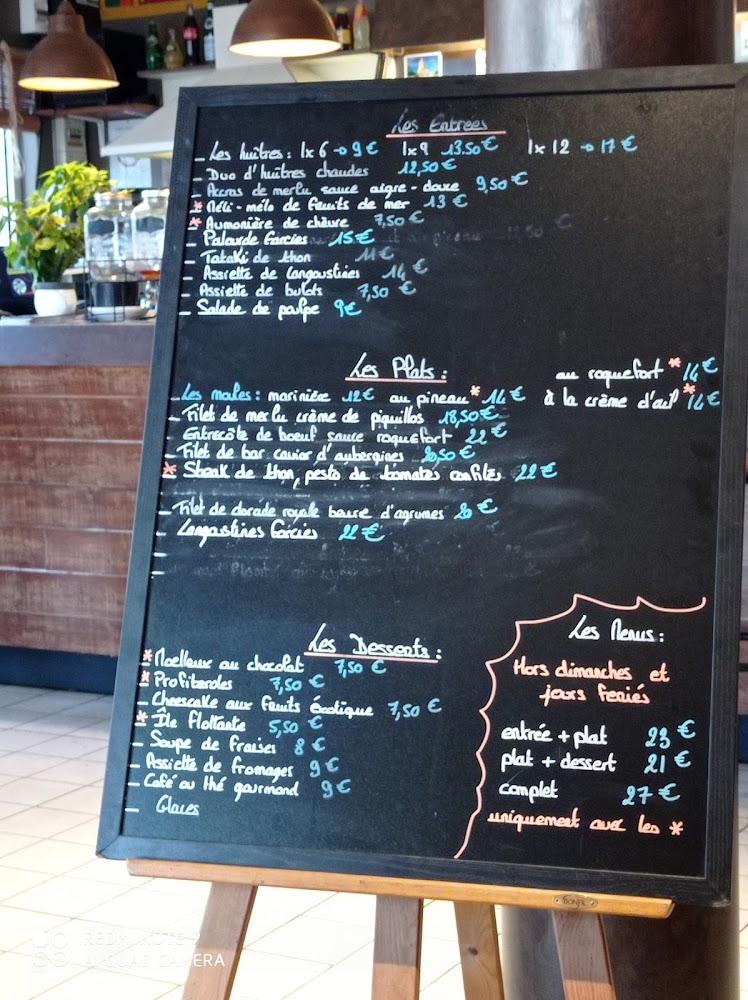 Les Entrees
_ Les huîtres : 1x 6 → 9 € 1x 9 13.50 € 1x 12 → 17 €
_ Duo d'huîtres chaudes 12,50 €
_ Accras de merlu sauce aigre-douce 9,50 €
* Méli-mélo de fruits de mer 13 €
* Aumonière de chèvre 7,50 €
_ Palourde farcies 15 €
_ Tataki de thon 11 €
_ Assiette de langoustines 14 €
_ Assiette de bulots 7,50 €
_ Salade de poulpe 9 €
Les Plats :
_ Les moules : marinière 12 € au pineau * 14 € au roquefort * 14 €
à la crème d'ail * 14 €
_ Filet de merlu crème de piquillos 18,50 €
_ Entrecôte de boeuf sauce roquefort 22 €
_ Filet de bar caviar d'aubergines 20,50 €
* Steak de thon, pesto de tomates confites 22 €
_ Filet de dorade royale beurre d'agrumes 20 €
_ Langoustines farcies 22 €
Les Desserts :
* Moelleux au chocolat 7,50 €
* Profiteroles 7,50 €
_ Cheescake aux fruits éxotique 7,50 €
* Île flottante 5,50 €
_ Soupe de fraises 8 €
_ Assiette de fromages 9 €
_ Café ou thé gourmand 9 €
_ Glaces
Les Menus :
Hors dimanches et
jours feriés
entrée + plat 23 €
plat + dessert 21 €
complet 27 €
uniquement avec les *
REDMI NOTE
QUAD CAMERA